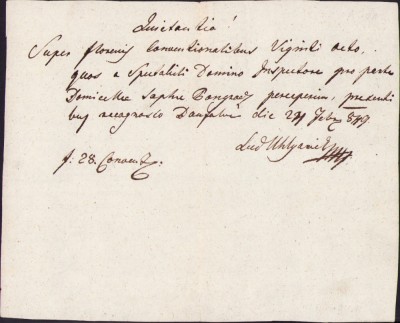 Quietantia!
Super florenis Conventionalibus Viginti octo,
quos a Spectabili Domino Inspectore pro parte
Domicellae Saphie Pongratz perceperim, presenti
bus recognosco die 24 Febr 849
Lud
f. 28. Convent.